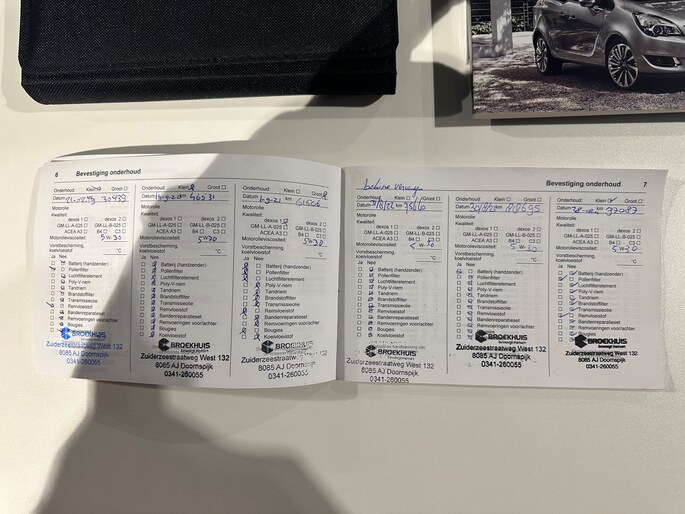 6 Bevestiging onderhoud
Onderhoud: Klein Groot
Datum km 30939
Motorolie
Kwaliteit:
dexos 1 dexos 2
GM-LL-A-025 GM-LL-B-025
ACEA A3 B4 C3
Motorolieviscositeit: 5W30
Vorstbescherming,
koelvloeistof °C
Ja Nee
Batterij (handzender)
Pollenfilter
Luchtfilterelement
Poly-V-riem
Tandriem
Brandstoffilter
Transmissieolie
Remvloeistof
Bandenreparatieset
Remvoeringen voor/achter
Bougies
Koelvloeistof
BROEKHUIS
Zuiderzeestraatweg West 132
8085 AJ Doornspijk
0341-260055
Onderhoud: Klein Groot
Datum km 46231
Motorolie
Kwaliteit:
dexos 1 dexos 2
GM-LL-A-025 GM-LL-B-025
ACEA A3 B4 C3
Motorolieviscositeit: 5W30
Vorstbescherming,
koelvloeistof °C
Ja Nee
Batterij (handzender)
Pollenfilter
Luchtfilterelement
Poly-V-riem
Tandriem
Brandstoffilter
Transmissieolie
Remvloeistof
Bandenreparatieset
Remvoeringen voor/achter
Bougies
Koelvloeistof
BROEKHUIS
beweegt mensen
Zuiderzeestraatweg West 132
8085 AJ Doornspijk
0341-260055
Onderhoud: Klein Groot
Datum 1-9-21 km 61506
Motorolie
Kwaliteit:
dexos 1 dexos 2
GM-LL-A-025 GM-LL-B-025
ACEA A3 B4 C3
Motorolieviscositeit: 5W30
Vorstbescherming,
koelvloeistof °C
Ja Nee
Batterij (handzender)
Pollenfilter
Luchtfilterelement
Poly-V-riem
Tandriem
Brandstoffilter
Transmissieolie
Remvloeistof
Bandenreparatieset
Remvoeringen voor/achter
Bougies
Koelvloeistof
BROEKHUIS
Zuiderzeestraatweg West 132
8085 AJ Doornspijk
0341-260055
Bevestiging onderhoud 7
Onderhoud: Klein Groot
Datum km
Motorolie
Kwaliteit:
dexos 1 dexos 2
GM-LL-A-025 GM-LL-B-025
ACEA A3 B4 C3
Motorolieviscositeit: 5W30
Vorstbescherming,
koelvloeistof °C
Ja Nee
Batterij (handzender)
Pollenfilter
Luchtfilterelement
Poly-V-riem
Tandriem
Brandstoffilter
Transmissieolie
Remvloeistof
Bandenreparatieset
Remvoeringen voor/achter
Bougies
BROEKHUIS
beweegt mensen
Zuiderzeestraatweg West 132
8085 AJ Doornspijk
0341-260055
Onderhoud: Klein Groot
Datum km
Motorolie
Kwaliteit:
dexos 1 dexos 2
GM-LL-A-025 GM-LL-B-025
ACEA A3 B4 C3
Motorolieviscositeit: 5W30
Vorstbescherming,
koelvloeistof °C
Ja Nee
Batterij (handzender)
Pollenfilter
Luchtfilterelement
Poly-V-riem
Tandriem
Brandstoffilter
Transmissieolie
Remvloeistof
Bandenreparatieset
Remvoeringen voor/achter
Bougies
BROEKHUIS
beweegt mensen
Zuiderzeestraatweg West 132
8085 AJ Doornspijk
0341-260055
Onderhoud: Klein Groot
Datum km 97087
Motorolie
Kwaliteit:
dexos 1 dexos 2
GM-LL-A-025 GM-LL-B-025
ACEA A3 B4 C3
Motorolieviscositeit: 5W30
Vorstbescherming,
koelvloeistof °C
Ja Nee
Batterij (handzender)
Pollenfilter
Luchtfilterelement
Poly-V-riem
Tandriem
Brandstoffilter
Transmissieolie
Remvloeistof
Bandenreparatieset
Remvoeringen voor/achter
Bougies
BROEKHUIS
beweegt mensen
Zuiderzeestraatweg West 132
8085 AJ Doornspijk
0341-260055